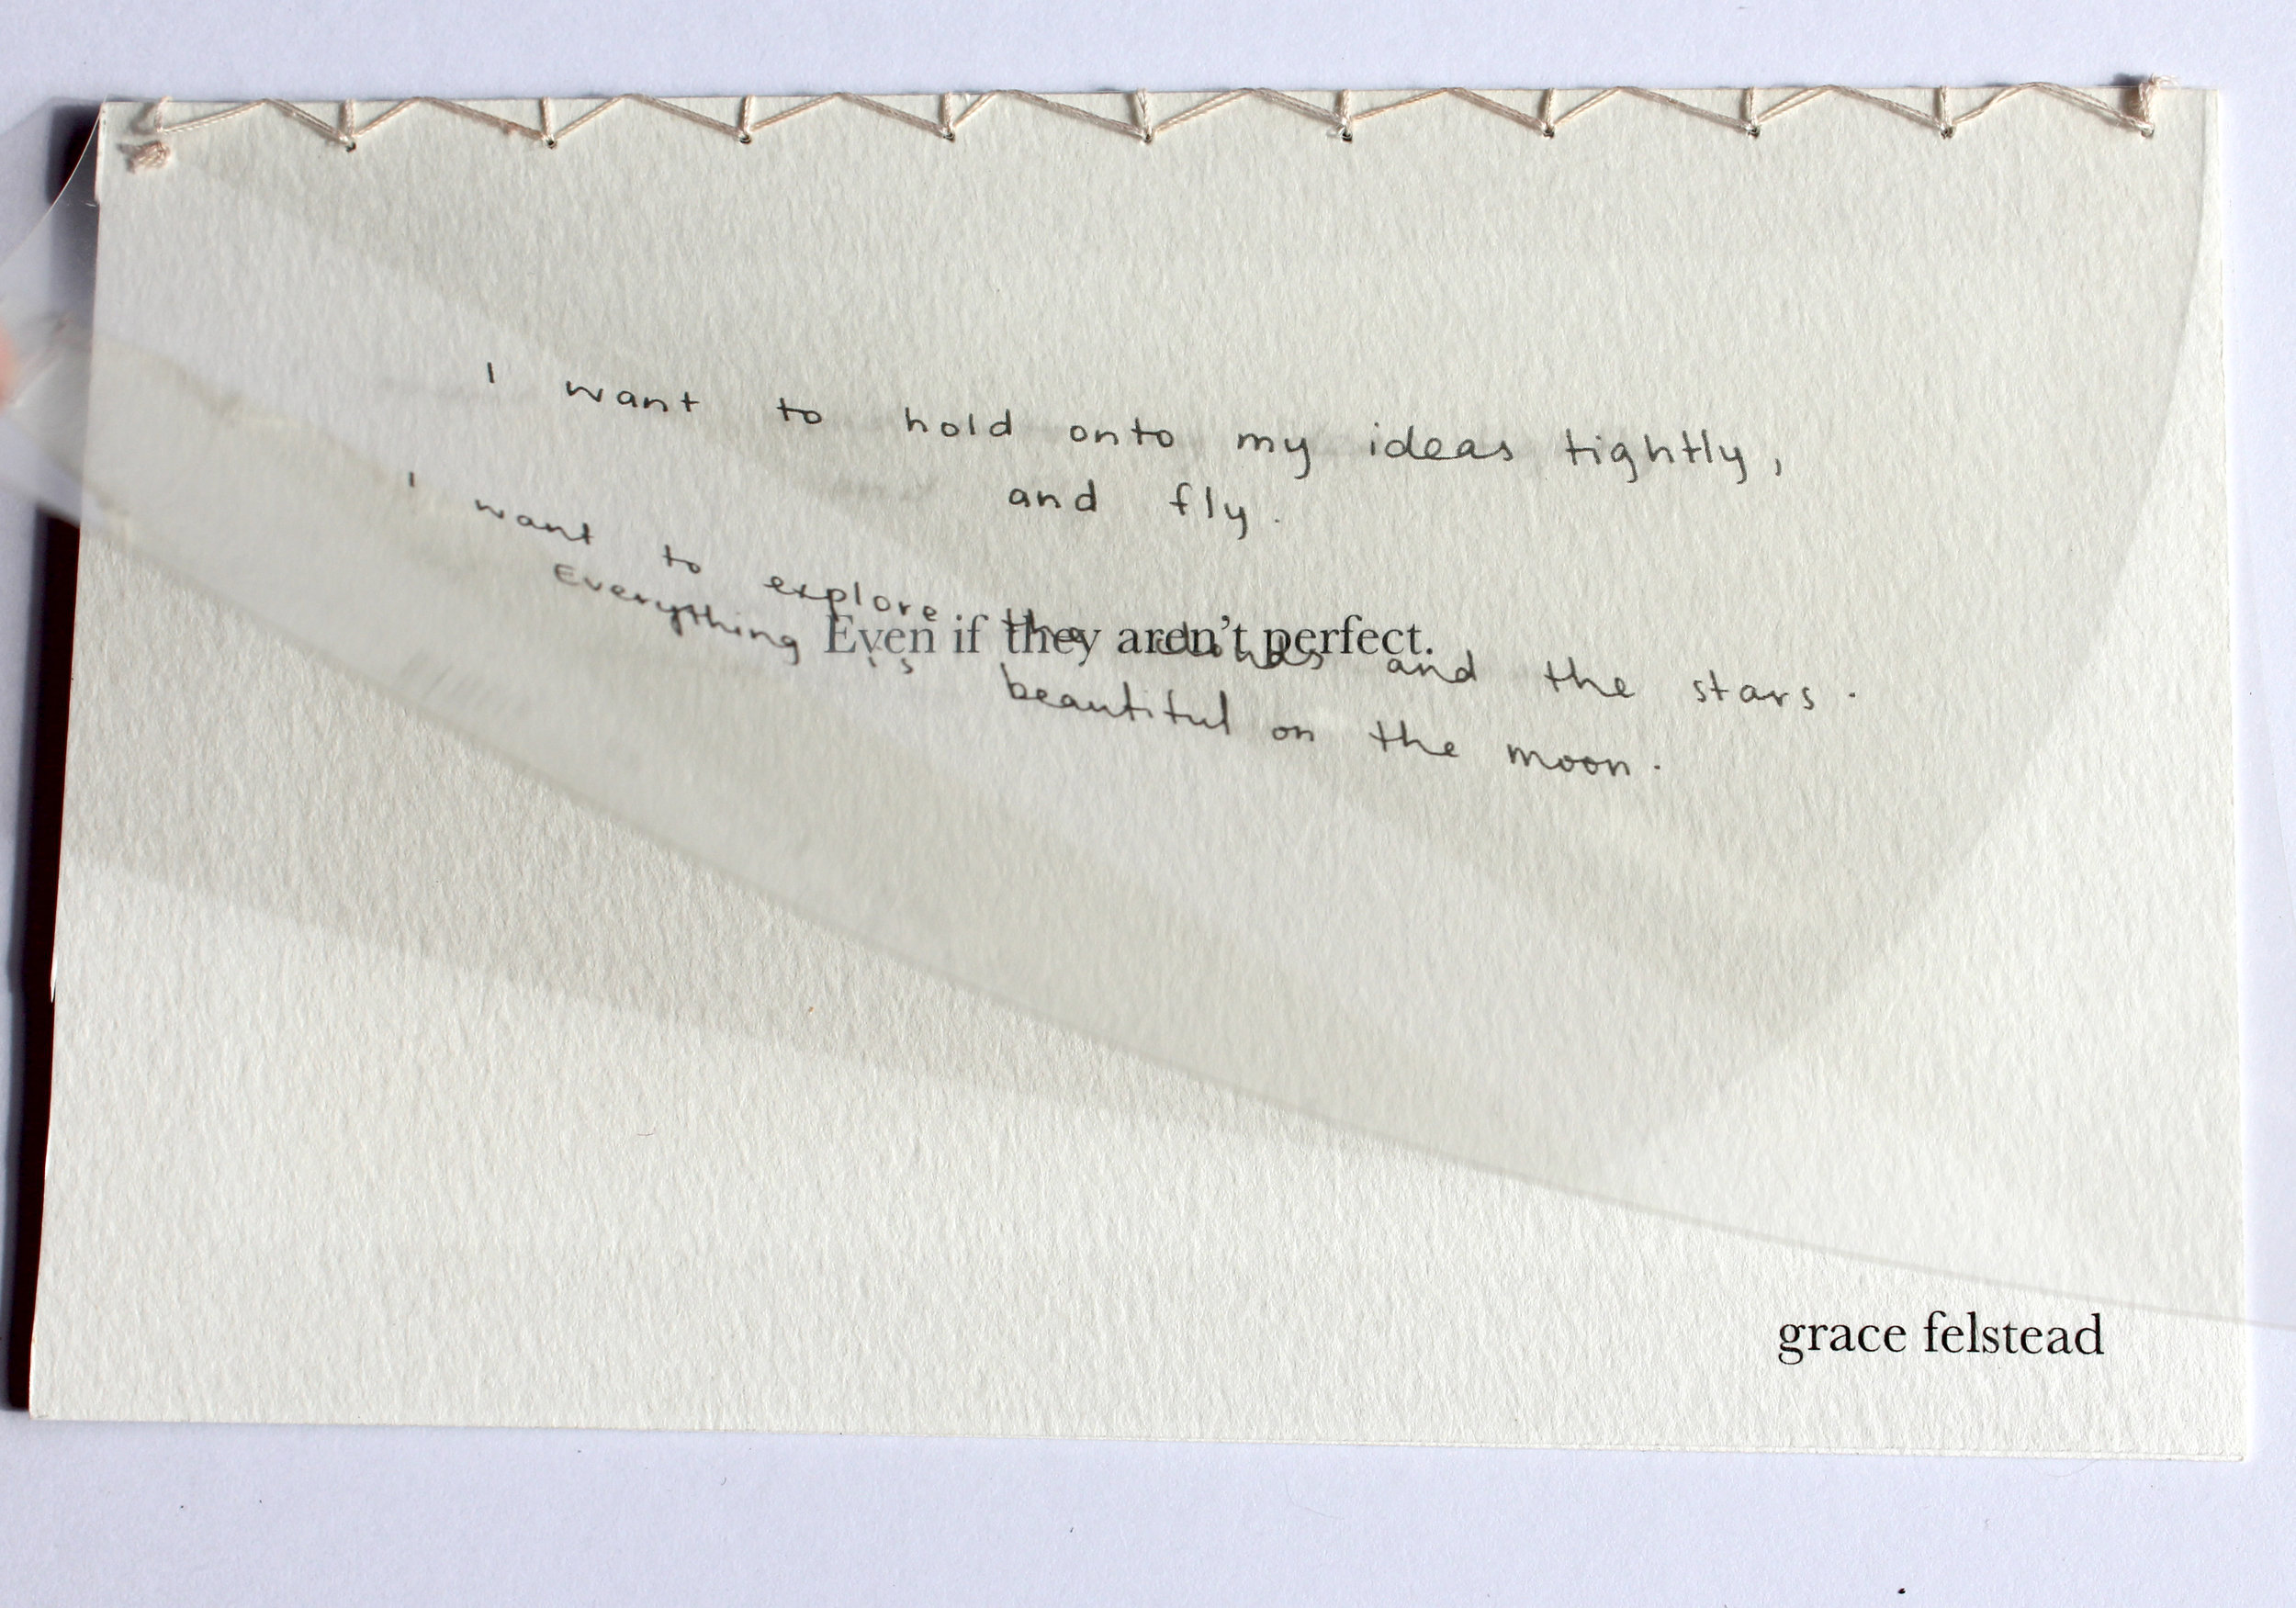 I want to hold onto my ideas tightly,
and fly.
I want to explore the clouds and the stars.
Everything is beautiful on the moon.
Even if they aren't perfect.
grace felstead